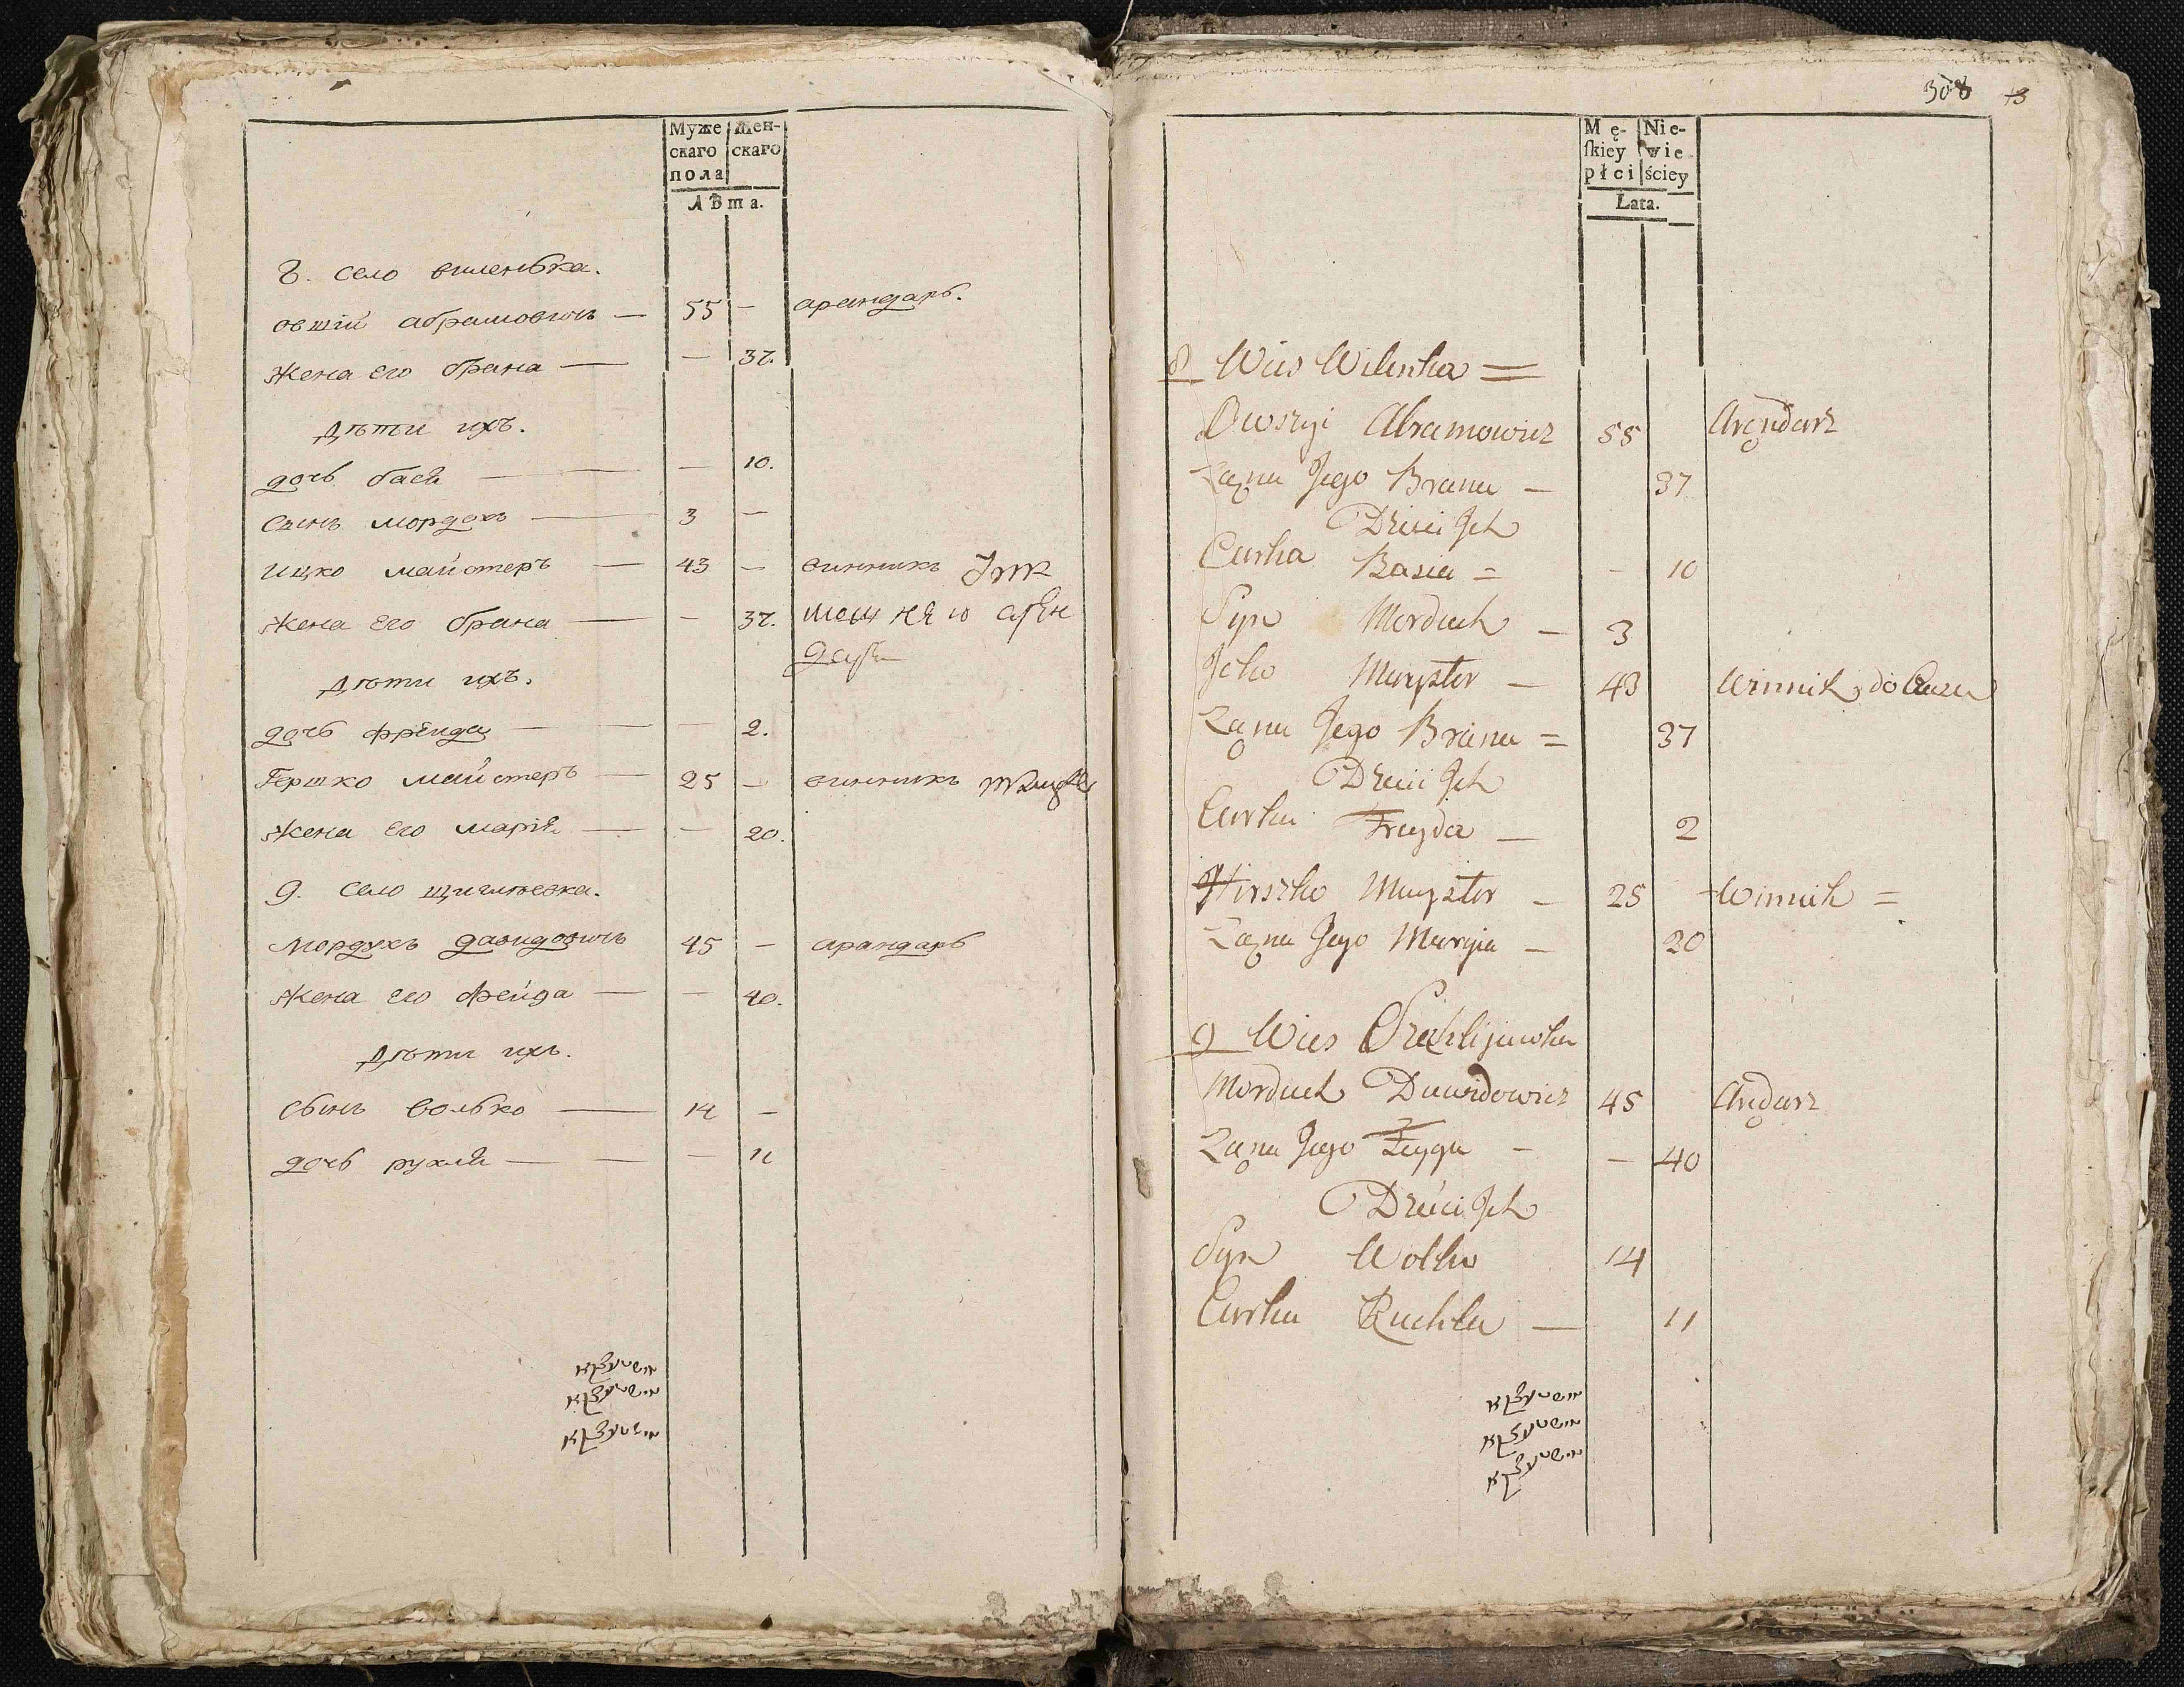 Муже скаго пола
жен- скаго
лѣта.
8. село виленька.
овшій абрамовичъ — 55 — арандарь.
жена его брана — — 37.
дѣти ихъ.
дочь бася — — 10.
сынъ мордохъ — 3 —
ицко майстеръ — 43 — винникъ
жена его брана — — 37.
дѣти ихъ.
дочь фрейда — — 2.
Гершко майстеръ — 25 — винникъ
жена его марія — — 20.
9. село
мордухъ давидовичъ 45 — арандарь
жена его фейга — — 40.
дѣти ихъ.
сынъ волько — 14 —
дочь рухля — — — 11
308 13
Mę- skiey płci
Nie- wie ściey
Lata.
8 Wies Wilenka =
Owszyi Abramowicz 55 Arędarz
Ząna Jego Brana — 37
Dzieci Jch
Curka Basia = - 10
Syn Morduch — 3
Jcko Mayster — 43 Winnik
Ząna Jego Brana = 37
Dzieci Jch
Curka Freyda — 2
Hirszko Mayster — 25 Winnik =
Ząna Jego Maryia — 20
9 Wies
Morduch Dawidowicz 45 Arędarz
Ząna Jego Feyga - — 40
Dzieci Jch
Syn Wolko 14
Curka Ruchla — 11